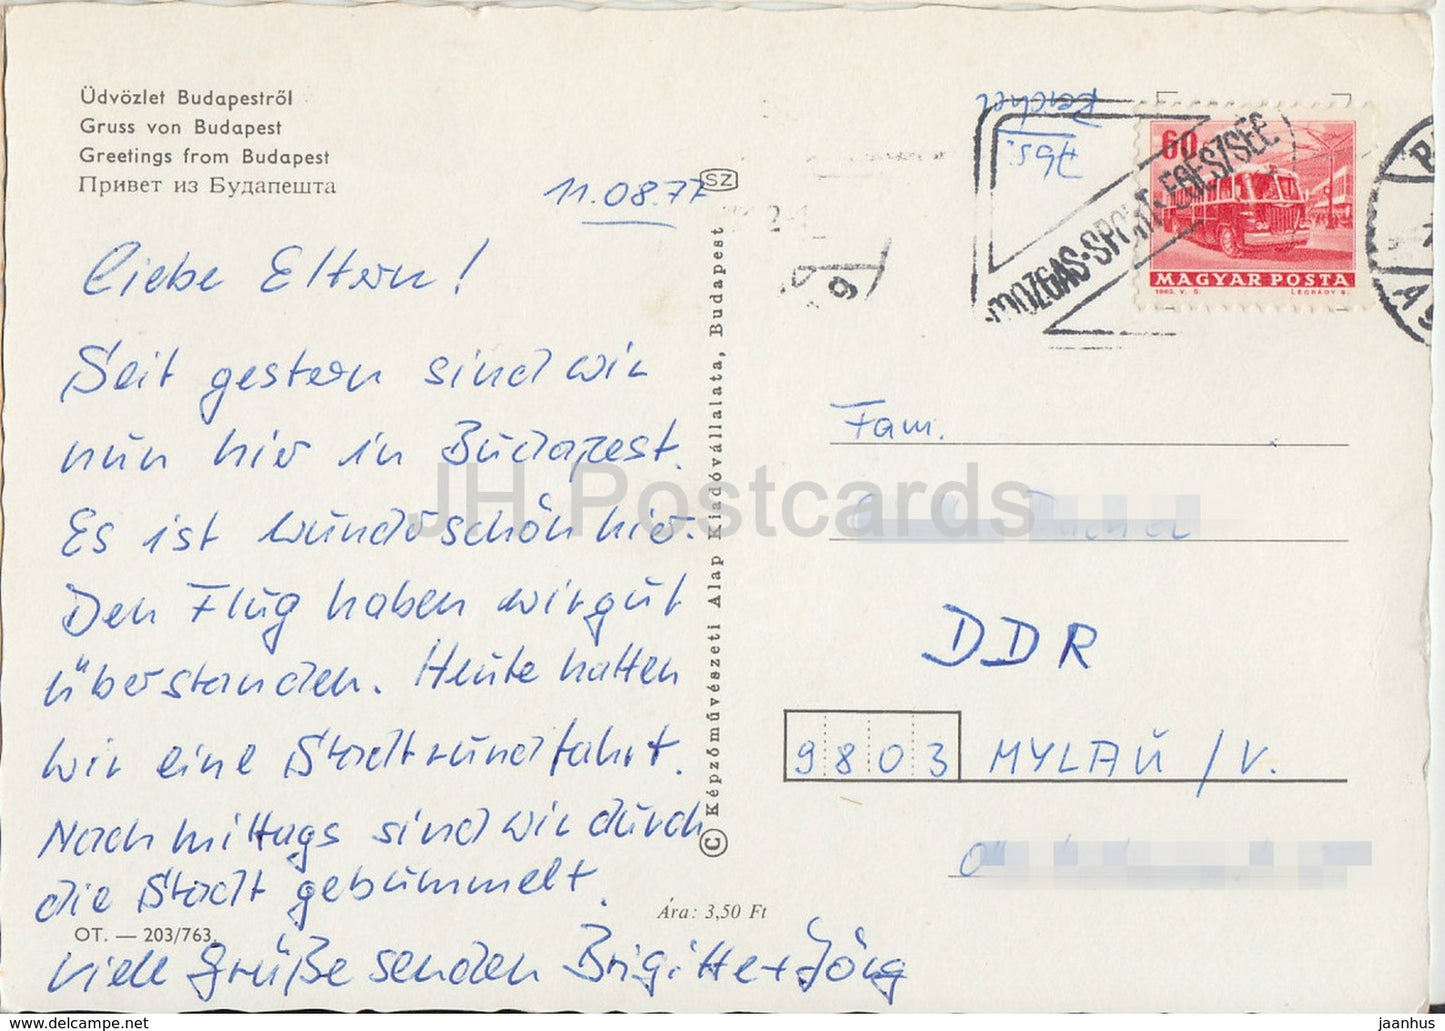 Üdvözlet Budapestről
Gruss von Budapest
Greetings from Budapest
Привет из Будапешта
11.08.77
SZ
Liebe Eltern!
Seit gestern sind wir
nun hier in Budapest.
Es ist wunderschön hier.
Den Flug haben wir gut
überstanden. Heute hatten
wir eine Stadtrundfahrt.
Nachmittags sind wir durch
die Stadt gebummelt.
Viele Grüße senden Brigitte + Jörg
OT. — 203/763.
Ára: 3,50 Ft
© Képzőművészeti Alap Kiadóvállalata, Budapest
Abs.
60
MAGYAR POSTA
1963. V. S. LÉGRÁDY S.
MOZGÁS·SPORT·EGÉSZSÉG
Fam.
DDR
9803 MYLAU / V.
JH Postcards
https://www.delcampe.net
jaanhus